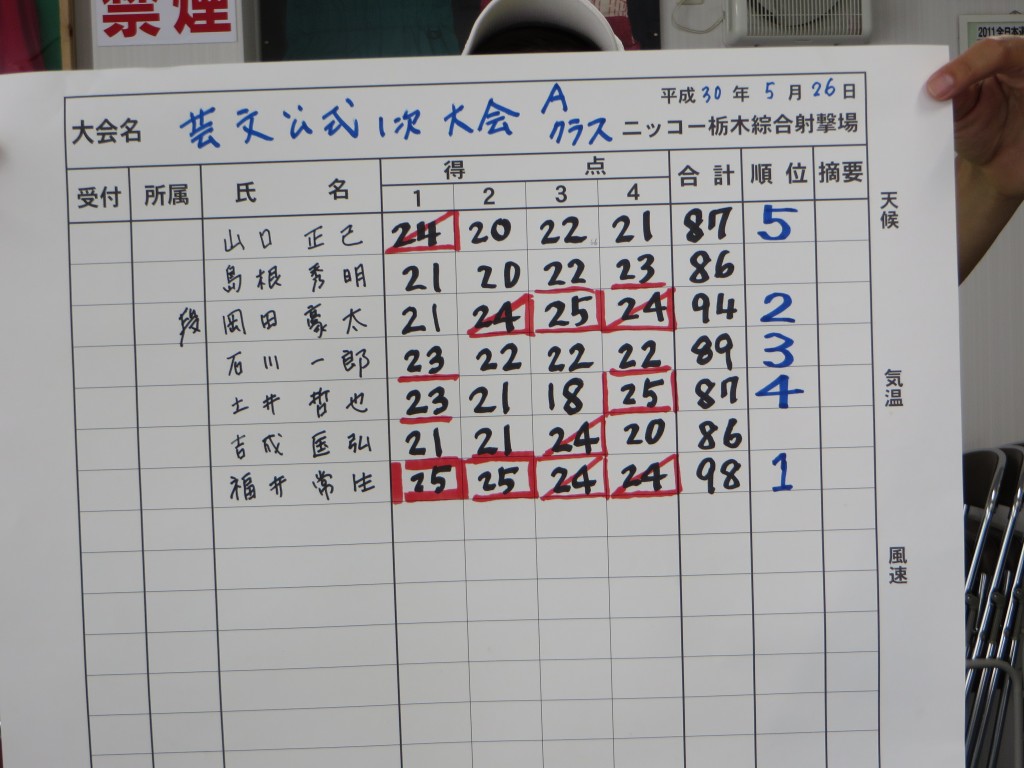 禁煙
2011全日本
大会名 芸文公式1次大会 Aクラス 平成30年5月26日
ニッコー栃木綜合射撃場
受付 所属 氏名 得点 合計 順位 摘要
1 2 3 4
山口 正己 24 20 22 21 87 5
島根 秀明 21 20 22 23 86
段 岡田 豪太 21 24 25 24 94 2
石川 一郎 23 22 22 22 89 3
土井 哲也 23 21 18 25 87 4
吉成 匡弘 21 21 24 20 86
福井 常生 25 25 24 24 98 1
天候
気温
風速